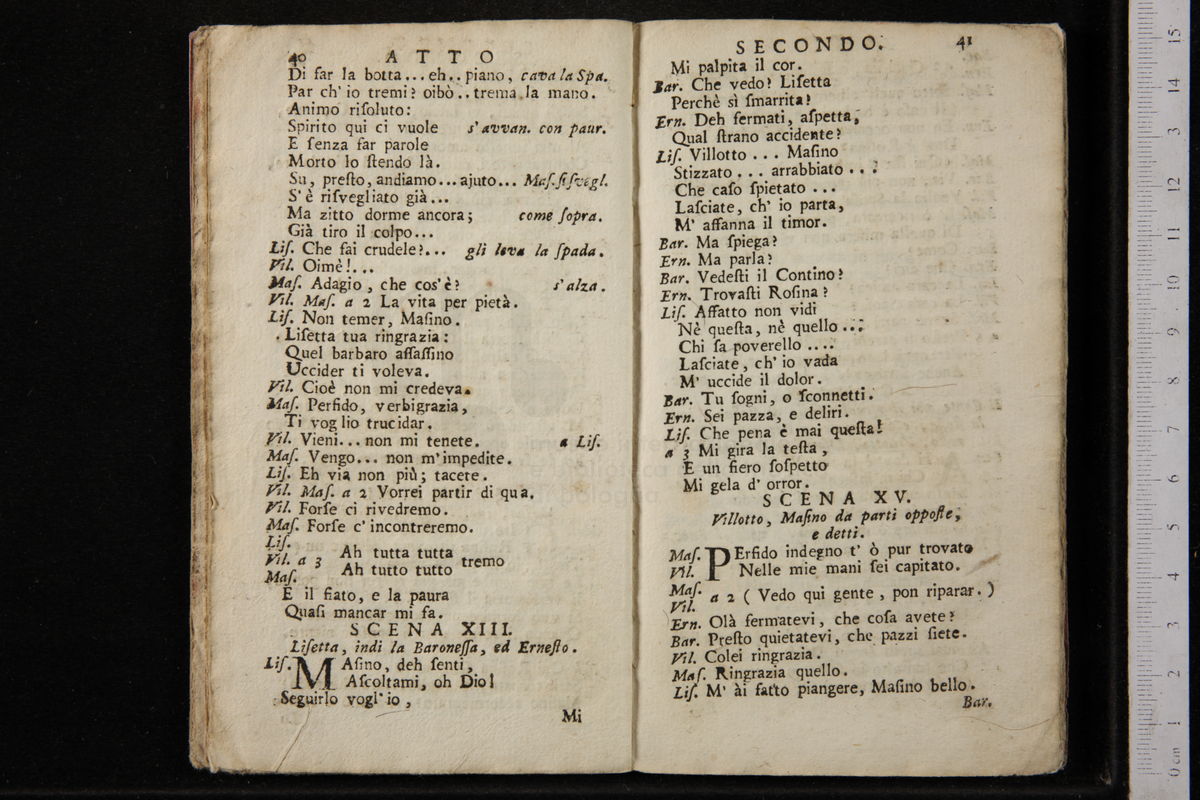 40 ATTO
Di far la botta... eh.. piano, cava la Spa.
Par ch' io tremi? oibò.. trema la mano.
Animo riſoluto:
Spirito qui ci vuole s'avvan. con paur.
E ſenza far parole
Morto lo ſtendo là.
Su, preſto, andiamo... ajuto... Maſ. ſi ſvegl.
S' è riſvegliato già...
Ma zitto dorme ancora; come ſopra.
Già tiro il colpo...
Liſ. Che fai crudele?... gli leva la ſpada.
Vil. Oimè!...
Maſ. Adagio, che cos'è? s'alza.
Vil. Maſ. a 2 La vita per pietà.
Liſ. Non temer, Maſino.
Liſetta tua ringrazia:
Quel barbaro aſſaſſino
Uccider ti voleva.
Vil. Cioè non mi credeva.
Maſ. Perfido, verbigrazia,
Ti voglio trucidar.
Vil. Vieni... non mi tenete. a Liſ.
Maſ. Vengo... non m'impedite.
Liſ. Eh via non più; tacete.
Vil. Maſ. a 2 Vorrei partir di qua.
Vil. Forſe ci rivedremo.
Maſ. Forſe c' incontreremo.
Liſ.
Vil. a 3 Ah tutta tutta tremo
Maſ. Ah tutto tutto
E il fiato, e la paura
Quaſi mancar mi fa.
SCENA XIII.
Liſetta, indi la Baroneſſa, ed Erneſto.
Liſ. MAſino, deh ſenti,
Aſcoltami, oh Dio!
Seguirlo vogl' io,
Mi
SECONDO. 41
Mi palpita il cor.
Bar. Che vedo? Liſetta
Perchè sì ſmarrita?
Ern. Deh fermati, aſpetta,
Qual ſtrano accidente?
Liſ. Villotto... Maſino
Stizzato... arrabbiato...
Che caſo ſpietato...
Laſciate, ch' io parta,
M' affanna il timor.
Bar. Ma ſpiega?
Ern. Ma parla?
Bar. Vedeſti il Contino?
Ern. Trovaſti Roſina?
Liſ. Affatto non vidi
Nè queſta, nè quello...
Chi ſa poverello....
Laſciate, ch' io vada
M' uccide il dolor.
Bar. Tu ſogni, o ſconnetti.
Ern. Sei pazza, e deliri.
Liſ. Che pena è mai queſta!
a 3 Mi gira la teſta,
E un fiero ſoſpetto
Mi gela d' orror.
SCENA XV.
Villotto, Maſino da parti oppoſte,
e detti.
Maſ. PErfido indegno t' ò pur trovato
Vil. Nelle mie mani ſei capitato.
Maſ. a 2 ( Vedo qui gente, pon riparar. )
Vil.
Ern. Olà fermatevi, che coſa avete?
Bar. Preſto quietatevi, che pazzi ſiete.
Vil. Colei ringrazia.
Maſ. Ringrazia quello.
Liſ. M' ài fatto piangere, Maſino bello.
Bar.